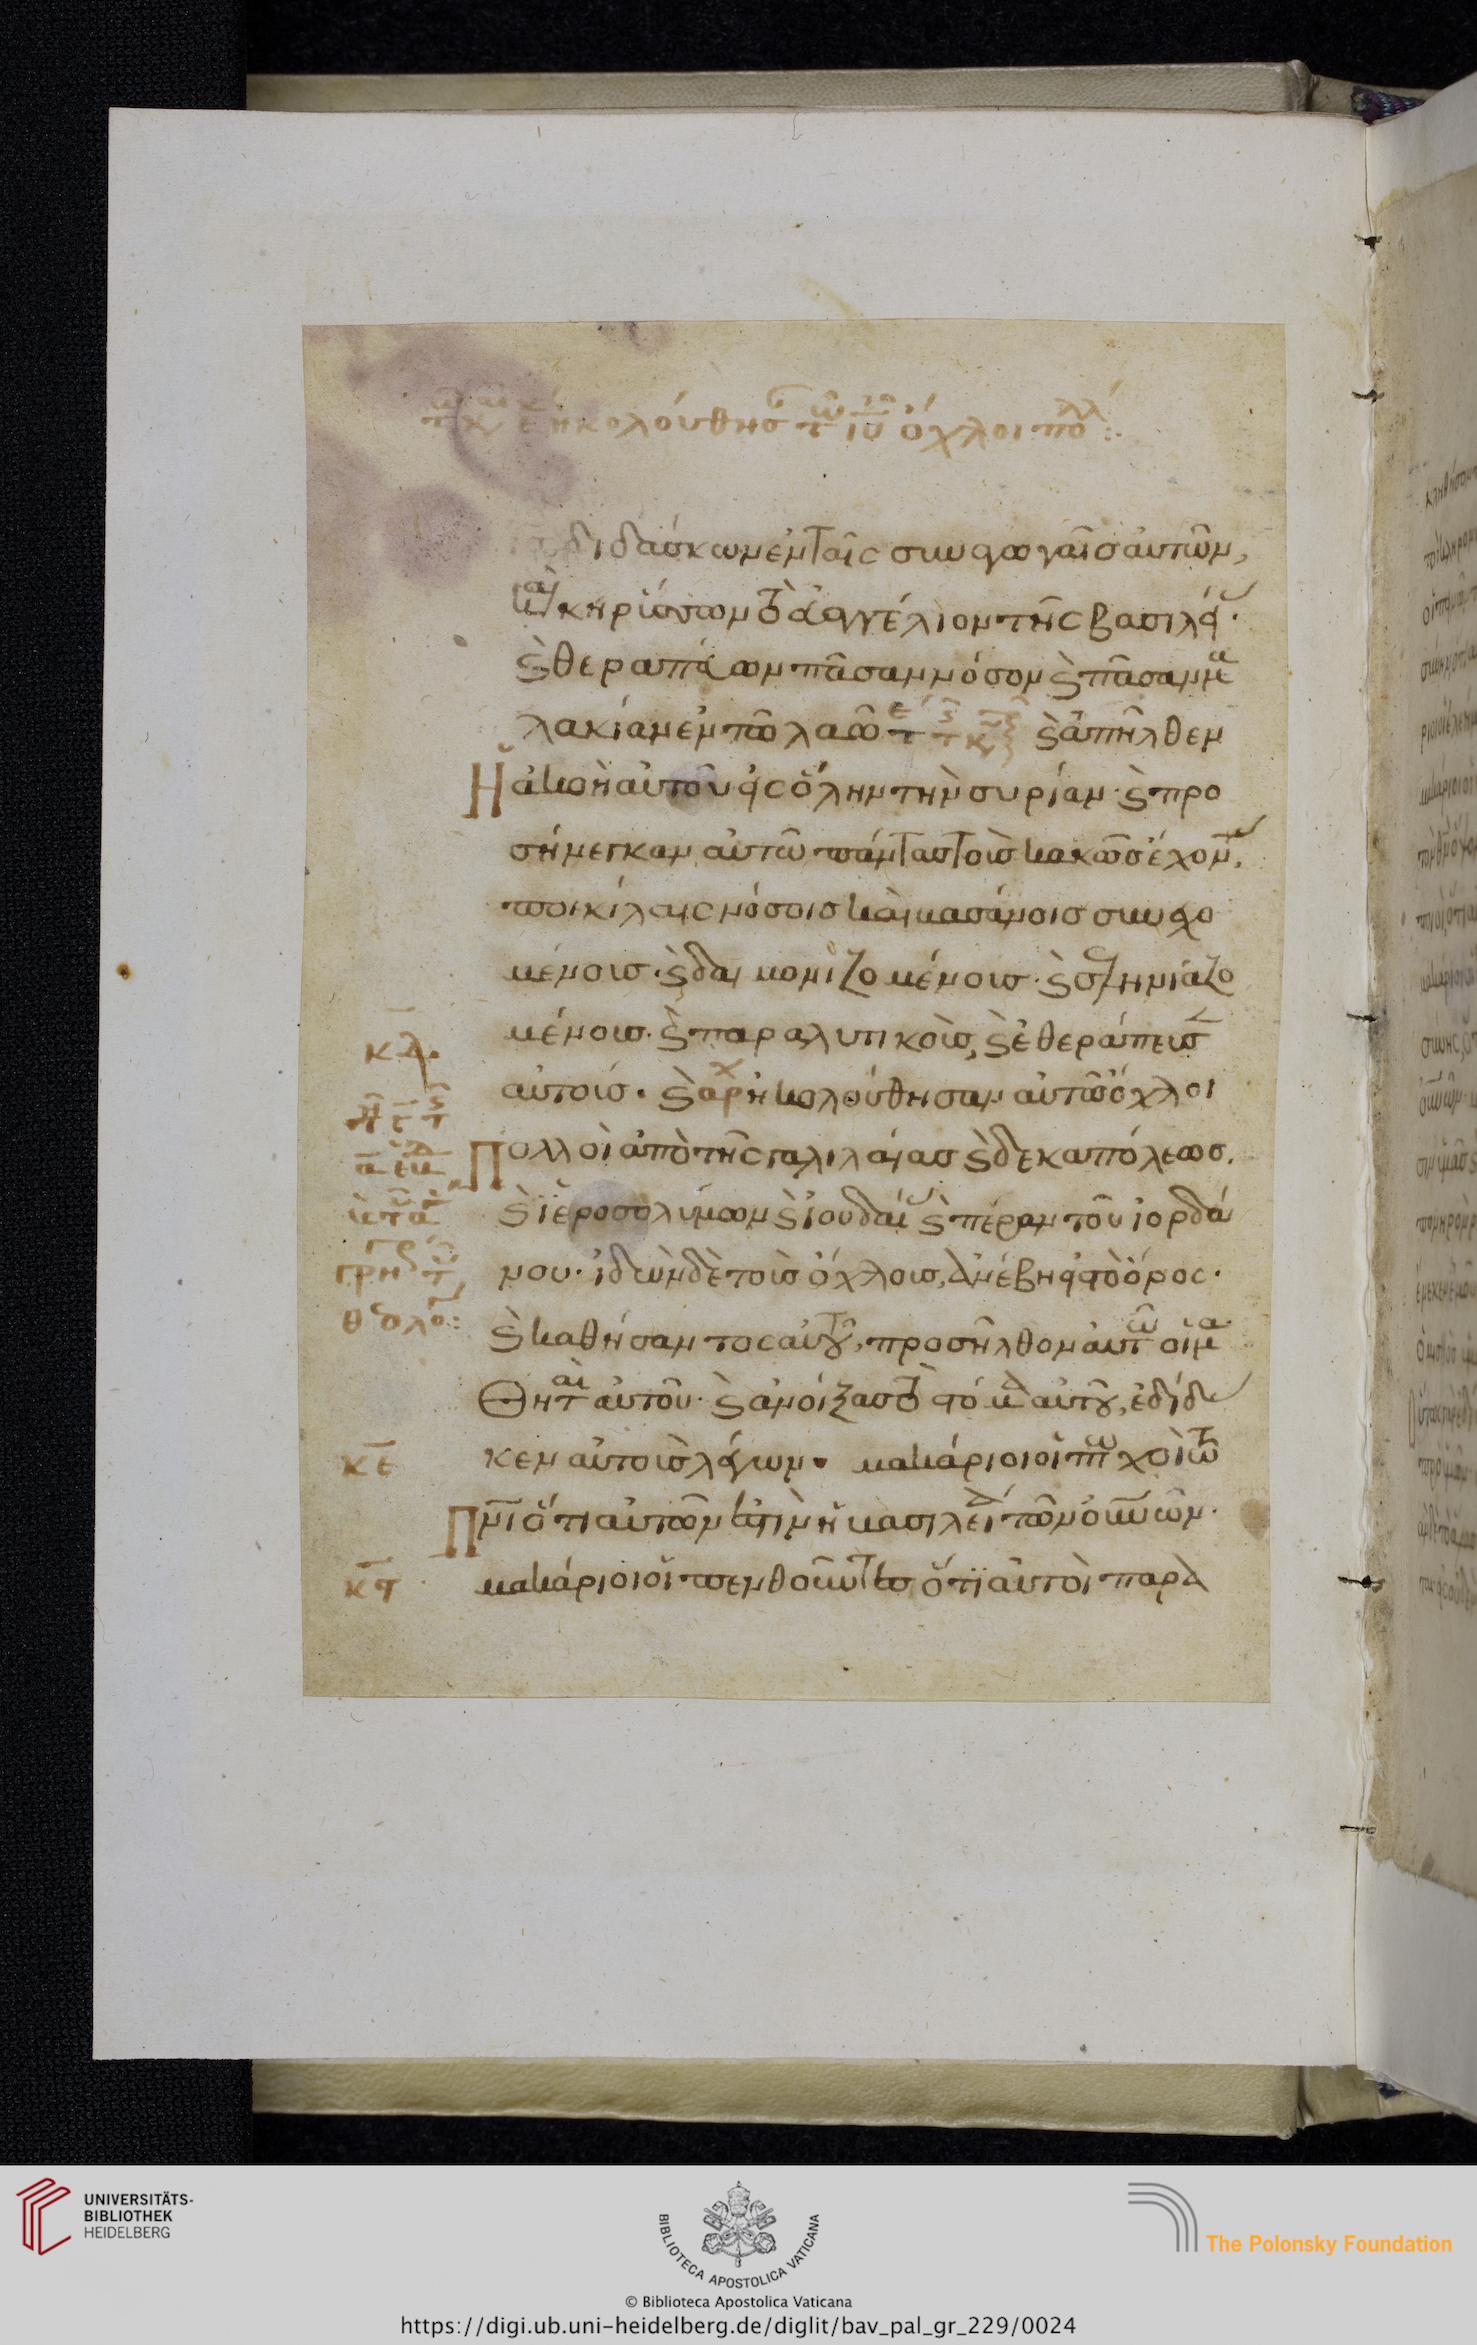 τ κ ε ηκολούθησ τ ιυ ὄχλοι πολλ :
διδάσκων ἐν ταῖς συναγωγαῖσ αὐτῶν,
καὶ κηρύσσων τὸ εὐαγγέλιον τῆς βασιλεί·
ϛ θεραπεύων πᾶσαν νόσον ϛ πᾶσαν μα
λακίαν ἐν τῶ λαῶ τε ϛ ἀπῆλθεν
Ἡ ἀκοὴ αὐτοῦ εἰς ὅλην τὴν συρίαν· ϛ προ
σήνεγκαν αὐτῶ πάντασ τοὺσ κακῶσ ἔχοντ,
ποικίλαις νόσοισ καὶ βασάνοισ συνεχο
μένουσ· ϛ δαιμονιζομένουσ· ϛ σεληνιαζο
μένουσ· ϛ παραλυτικοὺσ, ϛ ἐθεράπευσ
αὐτούσ· ϛ αρχ ἠκολούθησαν αὐτῶ ὄχλοι
Πολλοὶ ἀπὸ τῆς γαλιλαίασ ϛ δεκαπόλεωσ.
ϛ ἱεροσολύμων ϛ ἰουδαί ϛ πέραν τοῦ ἰορδά
νου· ἰδὼν δὲ τοὺσ ὄχλουσ, ἀνέβη εἰς τὸ ὄρος·
ϛ καθήσαντος αὐτοῦ, προσῆλθον αὐτῶ οἱ μα
Θηταὶ αὐτοῦ· ϛ ἀνοίξασ τὸ στόμα αὐτοῦ, ἐδίδασ
κεν αὐτοὺσ λέγων· μακάριοι οἱ πτωχοὶ τῶ
Πνι ὅτι αὐτῶν ἐστὶν ἡ βασιλεία τῶν οὐνῶν·
μακάριοι οἱ πενθοῦντεσ ὅτι αὐτοὶ παρα
κδ
κε
κϛ
UNIVERSITÄTS-
BIBLIOTHEK
HEIDELBERG
BIBLIOTECA APOSTOLICA VATICANA
The Polonsky Foundation
© Biblioteca Apostolica Vaticana
https://digi.ub.uni-heidelberg.de/diglit/bav_pal_gr_229/0024